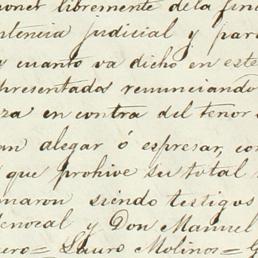 poner libremente de la fin
ntencia judicial y para
y cuanto va dicho en este
presentados renunciando
za en contra del tenor
an alegar ó espresar, con
que prohive ser total
maron siendo testigos
y Don Manuel
ero= Lauro Molinos= G